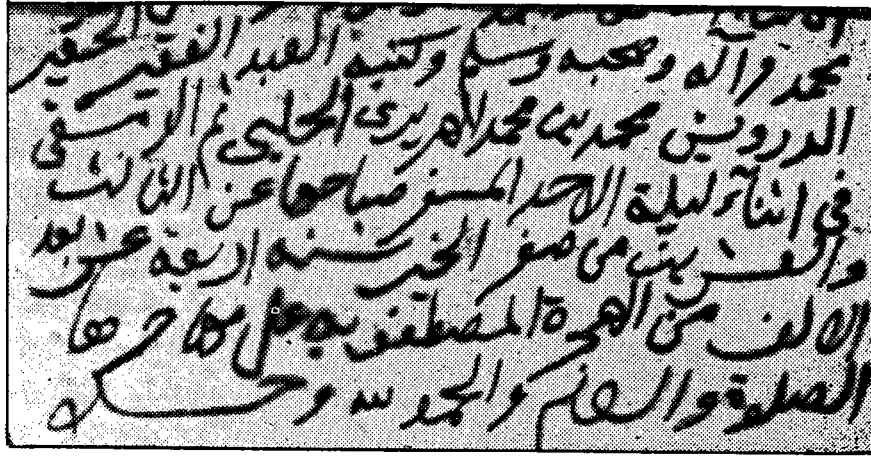 محمد واله وصحبه وسلم وكتبه العبد الفقير الحقير
الدرويش محمد بن محمد الحليى ثم الدمشقى
في اثنآء ليلة الاحد المسفر صباحها عن الثالث
والعشرين من صفر الخير سنه اربعة عشر بعد
الالف من الهجرة المصطفويه على مهاجرها
الصلوة والسلام والحمد لله وحده